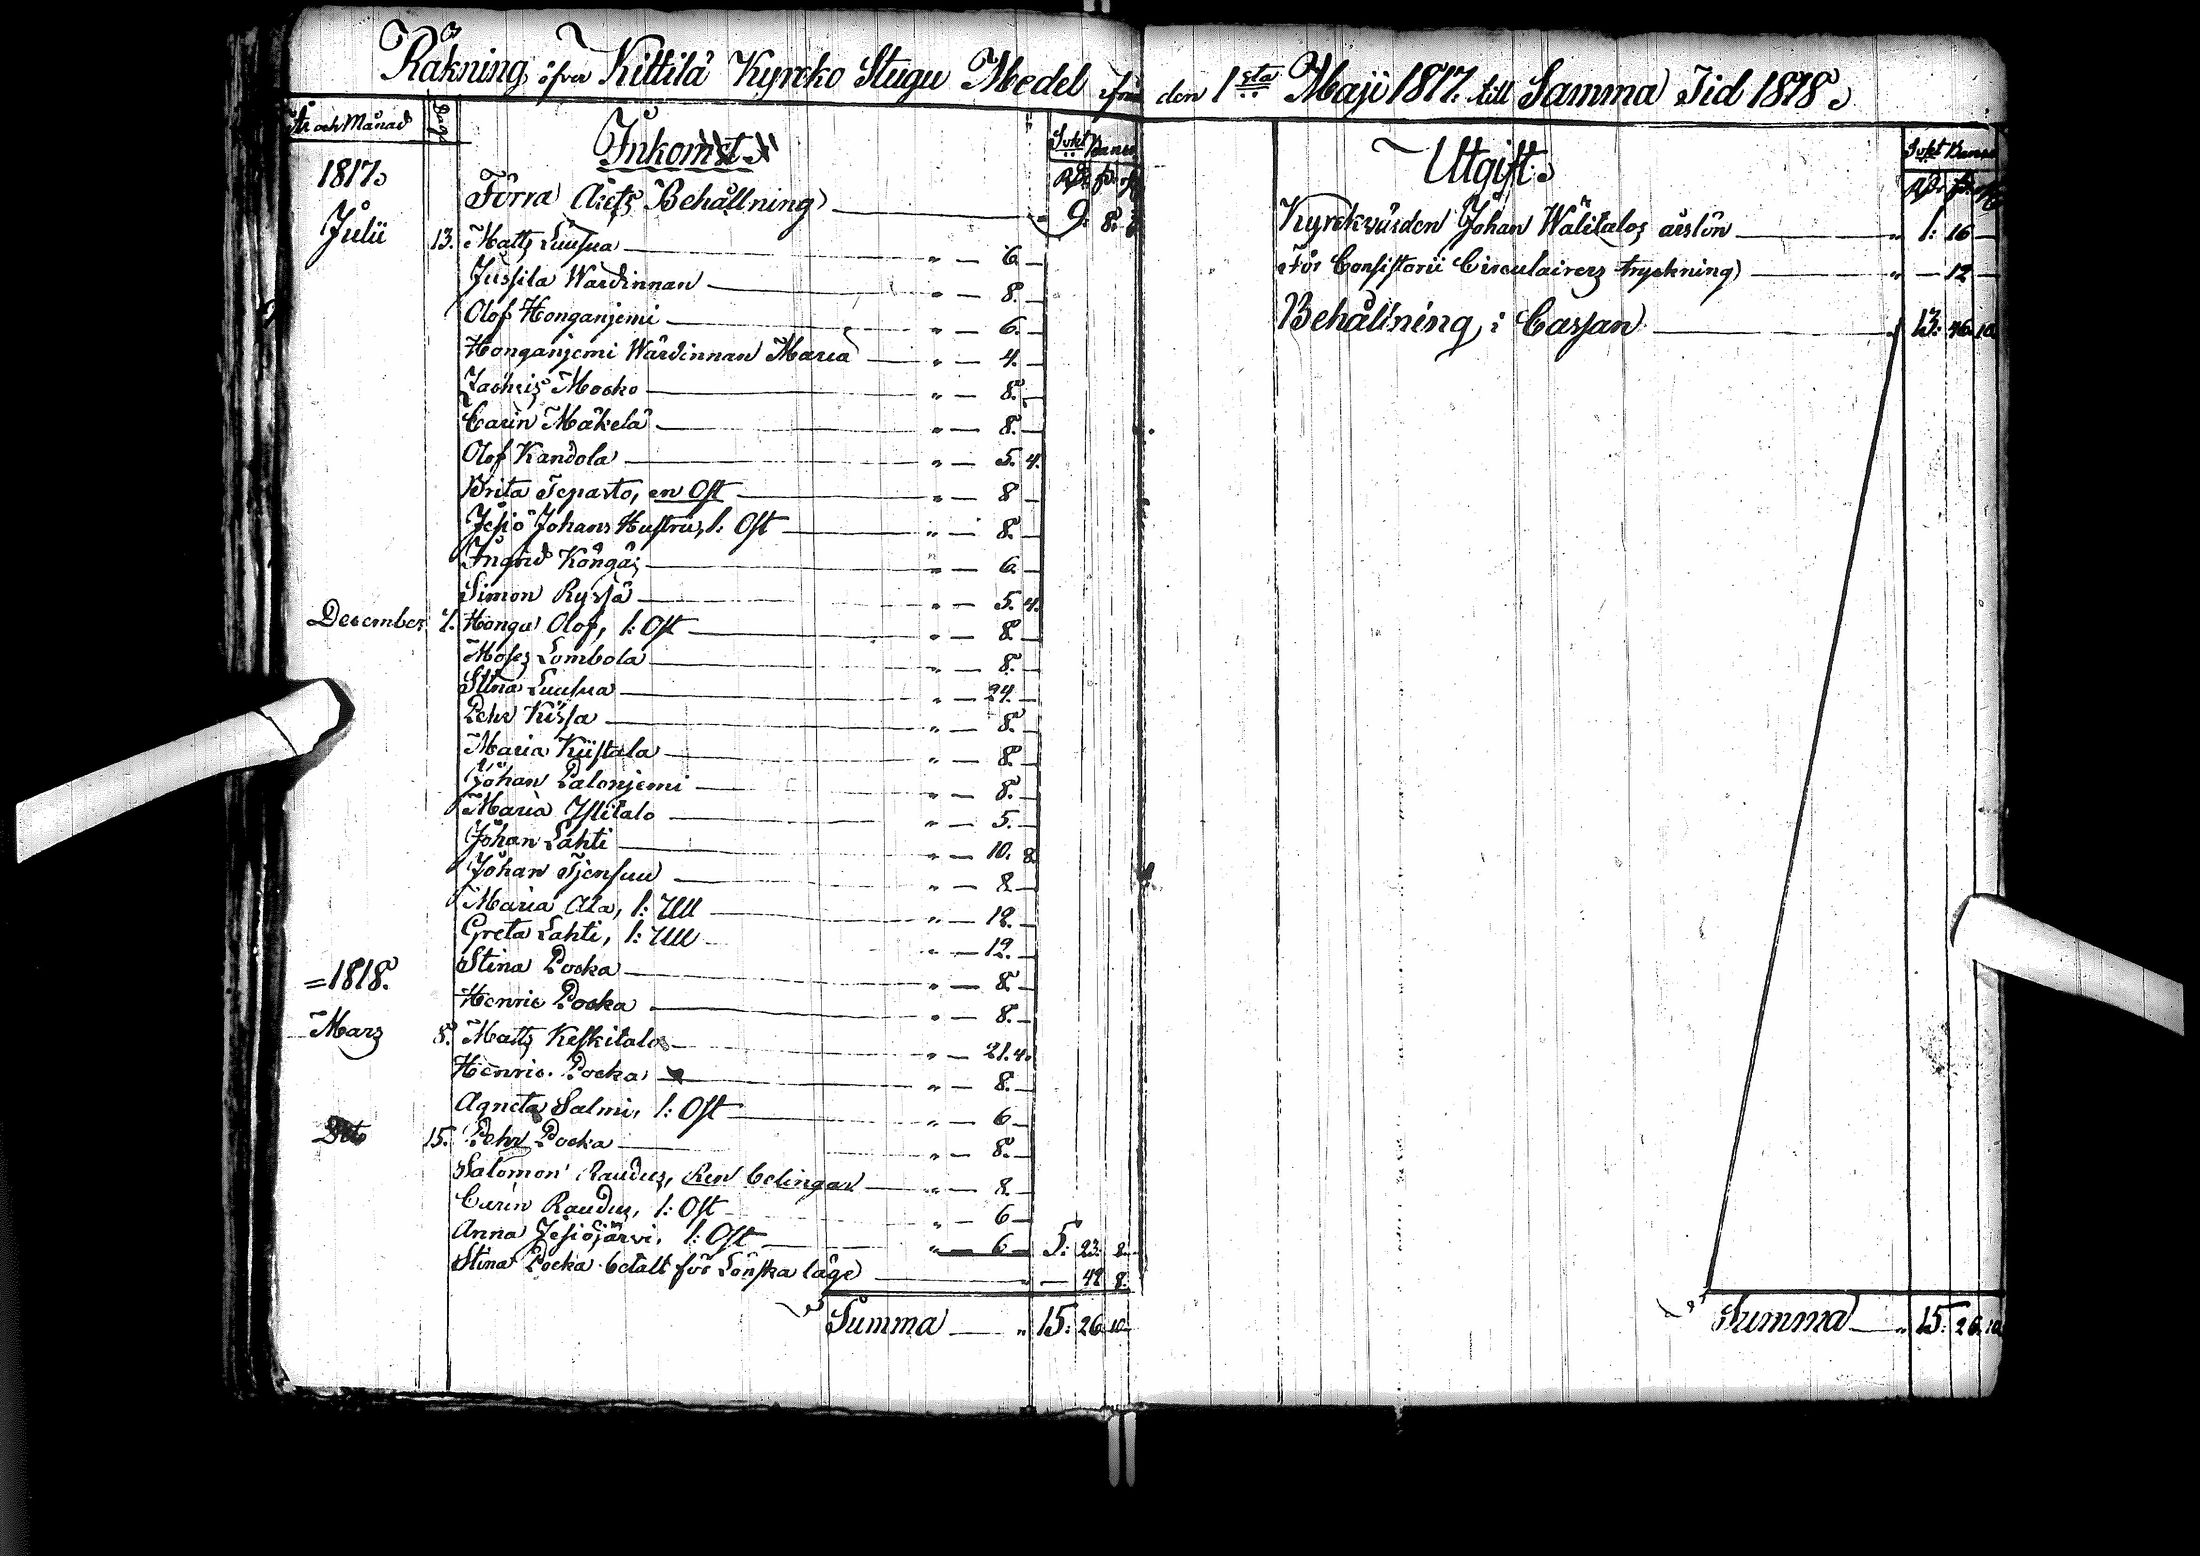 Räkning öfver Kittilä Kyrcko Stugu Medel ifrån den 1sta Maji 1817. till Samma Tid 1818.
År och Månad Dag
Inkomst
Svkt Banco
Rdr s. r
1817.
Förra Årets Behållning — 9: 8.
Julii 13. Matts Luusua — " — 6 —
Jussila Wärdinnan — " — 8. —
Olof Honganjemi — " — 6. —
Honganjemi Wärdinnan Maria — " — 4. —
Zachris Mocko — " — 8. —
Carin Mäkelä — " — 8. —
Olof Kandola — " — 5. 4.
Brita Tepasto, en Ost — " — 8 —
Jesiö Johans Hustru, 1: Ost — " — 8. —
Ingrid Köngäs — " — 6. —
Simon Ryssä — " — 5. 4.
December 7. Hongu Olof, 1: Ost — " — 8. —
Moses Lombola — " — 8. —
Stina Luusua — " — 24. —
Pehr Kissa — " — 8. —
Maria Kiistala — " — 8. —
Johan Palonjemi — " — 8. —
Maria Ylitalo — " — 5. —
Johan Lahti — " — 10. 8
Johan Tjensuu — " — 8 —
Maria Ala, 1: Ull — " — 12. —
Greta Lahti, 1: Ull — " — 12. —
Stina Pocka — " — 8. —
=1818.
Henric Pocka — " — 8. —
Mars 8. Matts Keskitalo — " — 21. 4.
Henric Pocka — " — 8. —
Agneta Salmi, 1: Ost — " — 6 —
Dito 15. Pehr Pocka — " — 8. —
Salomon Raudus, Ren — " — 8. —
Carin Raudus, 1: Ost — " — 6 —
Anna Jesiöjärvi, 1: Ost — " — 6 — 5: 23: 8.
Stina Pocka betalt för Lönska läge — " — 42 8.
Summa — " 15: 26 10
Utgift.
Svkt Banco
Rdr s. r
Kyrckvärden Johan Wälitalos årslön — " 1: 16 —
För Consistorii Circulairers tryckning — " — 12 —
Behållning i Cassan — " 13: 46 10
Summa — " 15: 26 10